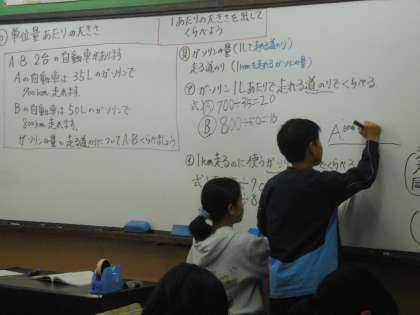 単位量あたりの大きさ
1あたりの大きさを出して
くらべよう
A B 2台の自動車があります
Aの自動車は 35Lのガソリンで
700km走れます。
Bの自動車は 50Lのガソリンで
800km走れます。
ガソリンの量と走る道のりについてABくらべましょう
ガソリンの量(1Lで走れる道のり)
走る道のり(1km走るガソリンの量)
ガソリン1Lあたりで走れる道のりでくらべる
式 A 700÷35=20
B 800÷50=16
1km走るのに使うガソリンでくらべる
式
A